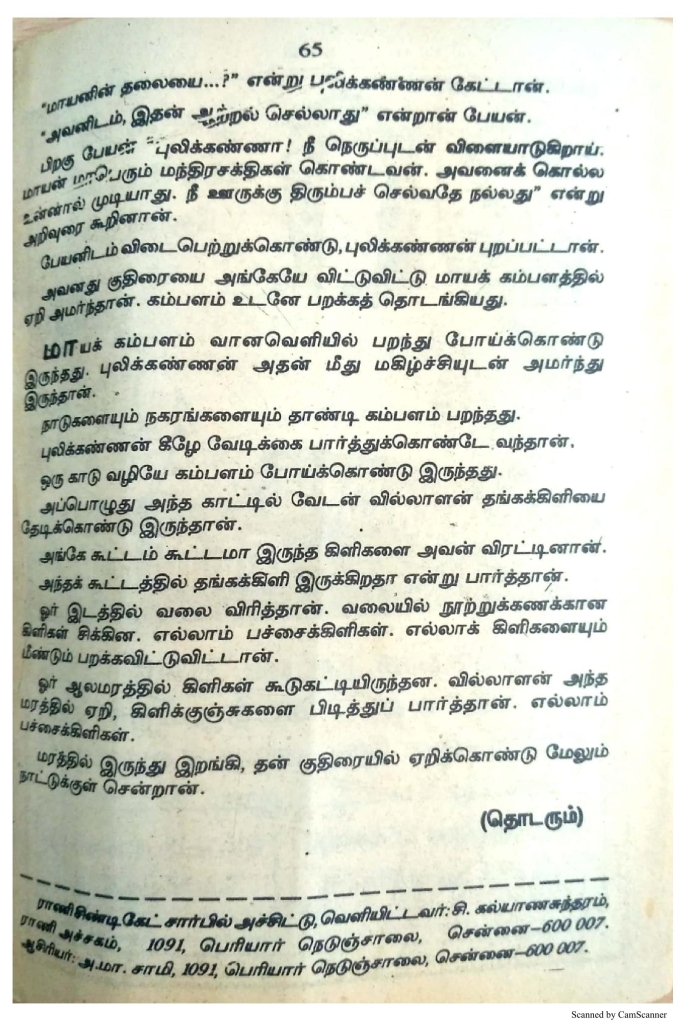 65
"மாயனின் தலையை...?" என்று புலிக்கண்ணன் கேட்டான்.
"அவனிடம், இதன் ஆற்றல் செல்லாது" என்றான் பேயன்.
பிறகு பேயன் "புலிக்கண்ணா! நீ நெருப்புடன் விளையாடுகிறாய்.
மாயன் மாபெரும் மந்திரசக்திகள் கொண்டவன். அவனைக் கொல்ல
உன்னால் முடியாது. நீ ஊருக்கு திரும்பச் செல்வதே நல்லது" என்று
அறிவுரை கூறினான்.
பேயனிடம் விடைபெற்றுக்கொண்டு, புலிக்கண்ணன் புறப்பட்டான்.
அவனது குதிரையை அங்கேயே விட்டுவிட்டு மாயக் கம்பளத்தில்
ஏறி அமர்ந்தான். கம்பளம் உடனே பறக்கத் தொடங்கியது.
மாயக் கம்பளம் வானவெளியில் பறந்து போய்க்கொண்டு
இருந்தது. புலிக்கண்ணன் அதன் மீது மகிழ்ச்சியுடன் அமர்ந்து
இருந்தான்.
நாடுகளையும் நகரங்களையும் தாண்டி கம்பளம் பறந்தது.
புலிக்கண்ணன் கீழே வேடிக்கை பார்த்துக்கொண்டே வந்தான்.
ஒரு காடு வழியே கம்பளம் போய்க்கொண்டு இருந்தது.
அப்பொழுது அந்த காட்டில் வேடன் வில்லாளன் தங்கக்கிளியை
தேடிக்கொண்டு இருந்தான்.
அங்கே கூட்டம் கூட்டமா இருந்த கிளிகளை அவன் விரட்டினான்.
அந்தக் கூட்டத்தில் தங்கக்கிளி இருக்கிறதா என்று பார்த்தான்.
ஓர் இடத்தில் வலை விரித்தான். வலையில் நூற்றுக்கணக்கான
கிளிகள் சிக்கின. எல்லாம் பச்சைக்கிளிகள். எல்லாக் கிளிகளையும்
மீண்டும் பறக்கவிட்டுவிட்டான்.
ஓர் ஆலமரத்தில் கிளிகள் கூடுகட்டியிருந்தன. வில்லாளன் அந்த
மரத்தில் ஏறி, கிளிக்குஞ்சுகளை பிடித்துப் பார்த்தான். எல்லாம்
பச்சைகிளிகள்.
மரத்தில் இருந்து இறங்கி, தன் குதிரையில் ஏறிக்கொண்டு மேலும்
நாட்டுக்குள் சென்றான்.
(தொடரும்)
ராணிசிண்டிகேட் சார்பில் அச்சிட்டு, வெளியிட்டவர்: சி. கல்யாணசுந்தரம்,
ராணி அச்சகம், 1091, பெரியார் நெடுஞ்சாலை, சென்னை-600 007.
ஆசிரியர்: அ.மா. சாமி, 1091, பெரியார் நெடுஞ்சாலை, சென்னை-600 007.
Scanned by CamScanner